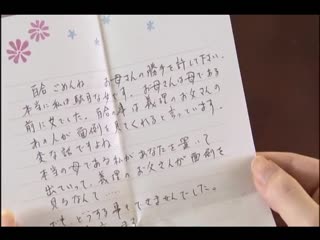 百合 ごめんね お母さんの勝手を許して下さい。
本当に私は駄目な女です。お母さんは母である
前に女でした。百合の事は義理のお父さんの
あ人が面倒を見てくれると言っています。
変な話ですよね
本当の母である私があなたを置いて
出ていって、義理のお父さんが面倒を
見るなんて……
でも、どうする事もできませんでした。